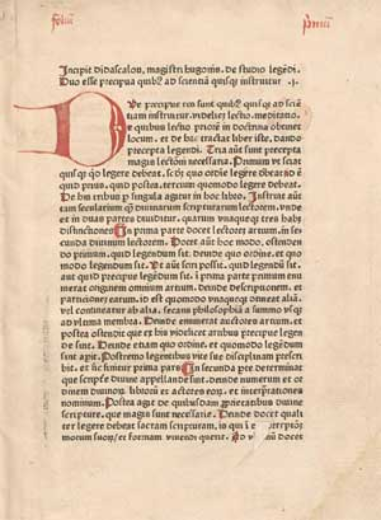 foliū primū
Incipit didascalon, magistri hugonis. de studio legēdi.
Duo esse precipua quibȝ ad scientiā quisqȝ instruitur .i.
Due precipue res sunt quibȝ quisqȝ ad sciē
tiam instruitur. videlicȝ lectio. meditatio.
e quibus lectio priorē in doctrina obtinet
locum. et de hac tractat liber iste. dando
precepta legendi. Tria aūt sunt precepta
magis lectioni necessaria. Primum vt sciat
quisqȝ qd legere debeat. scdȝ quo ordie legere debeat id ē
quid prius. quid postea. tercium quomodo legere debeat.
De his tribus p singula agitur in hoc libro. Instruit aūt
tam secularium qȝ diuinarum scripturarum lectorem. vnde
et in duas partes diuiditur. quarum vnaqueqȝ tres habȝ
distinctiones In prima parte docet lectorem artium. in se-
cunda diuinum lectorem. Docet aūt hoc modo, ostenden
do primum. quid legendum sit. deinde quo ordine. et quo
modo legendum sit. Vt aūt sciri possit. quid legendū sit.
aut quid precipue legēdum sit. i prima parte primum enu
merat originem omnium artium. deinde descriptionem. et
particiones earum. id est quomodo vnaqueqȝ cōtineat aliā.
vel contineatur ab alia. secans philosophiā a summo vsqȝ
ad vltima membra. Deinde enumerat auctores artium. et
postea ostendit que ex his videlicet artibus precipue legen
de sint. Deinde etiam quo ordine. et quomodo legēdum
sint apit. Postremo legentibus vite sue disciplinam prescri
bit. et sic finitur prima pars In secunda pte determinat
que scripte diuine appellande sunt. deinde numerum et or
dinem diuinorȝ librorū et actores eorȝ. et interpretationes
nominum. Postea agit de quibusdam proprietatibus diuine
scripture. que magis sunt necessarie. Deinde docet quali
ter legere debeat sacram scripturam, is qui i e
morum suorȝ et formam viuendi querit. Ad docet